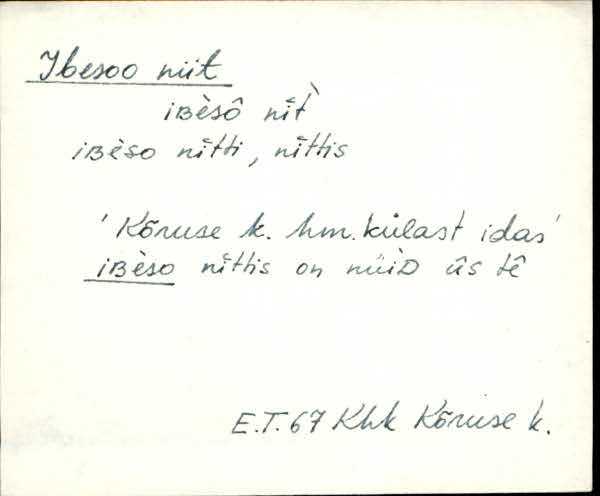 Ibesoo niit
iʙèsô nî̀t
iʙèso nîtti, nîttis
'Kõruse k. hm. külast idas'
iʙèso nîttis on nüiᴅ ûs tê
E.T. 67 Khk Kõruse k.